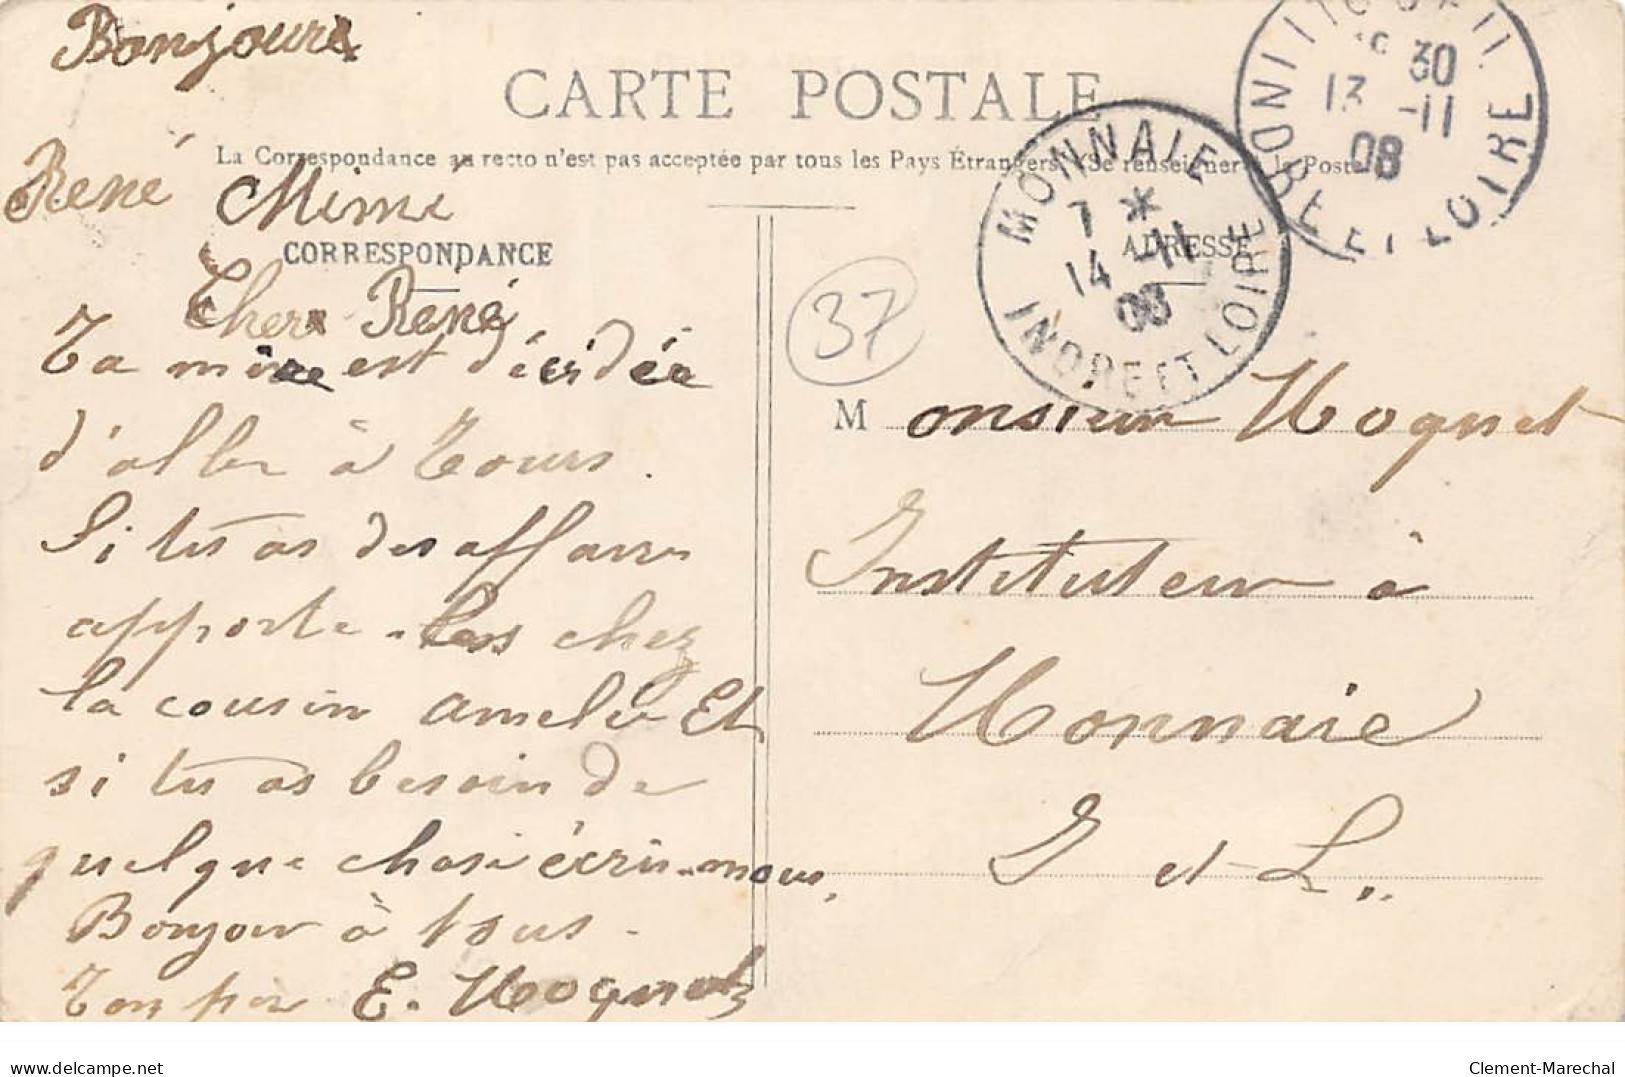 Bonjour
René Mimi
CARTE POSTALE
La Correspondance au recto n'est pas acceptée par tous les Pays Étrangers (Se renseigner à la Poste)
CORRESPONDANCE
Cher René
Ta mère est décidée
d'aller à Tours.
Si tu as des affaires
apporte-les chez
la cousin amelie Et
si tu as besoin de
quelque chose écris-nous,
Bonjour à tous.
Ton père E. Hoguet
37
ADRESSE
Monsieur Hoguet
Instituteur à
Monnaie
I et L..
MONNAIE
7 *
14 -11
08
INDRE ET LOIRE
30
13 -11
08
INDRE ET LOIRE
delcampe.net
Clement-Marechal